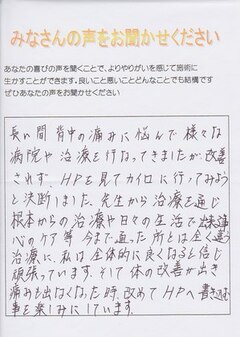 みなさんの声をお聞かせください
あなたの喜びの声を聞くことで、よりやりがいを感じて施術に
生かすことができます。良いこと悪いことどんなことでも結構です
ぜひあなたの声をお聞かせください
長い間 背中の痛みに悩んで 様々な
病院や 治療を行なってきましたが、改善
されず、HPを見てカイロに行ってみよう
と決断しました。先生から治療を通じ
根本からの治療や日々の生活で
心のケア等 今まで通った所とは全く違う
治療に、私は全体的に良くなると信じ
頑張っています。そして体の改善が出き
痛みも出なくなった時、改めて HPへ書き込む
事を楽しみにしています。